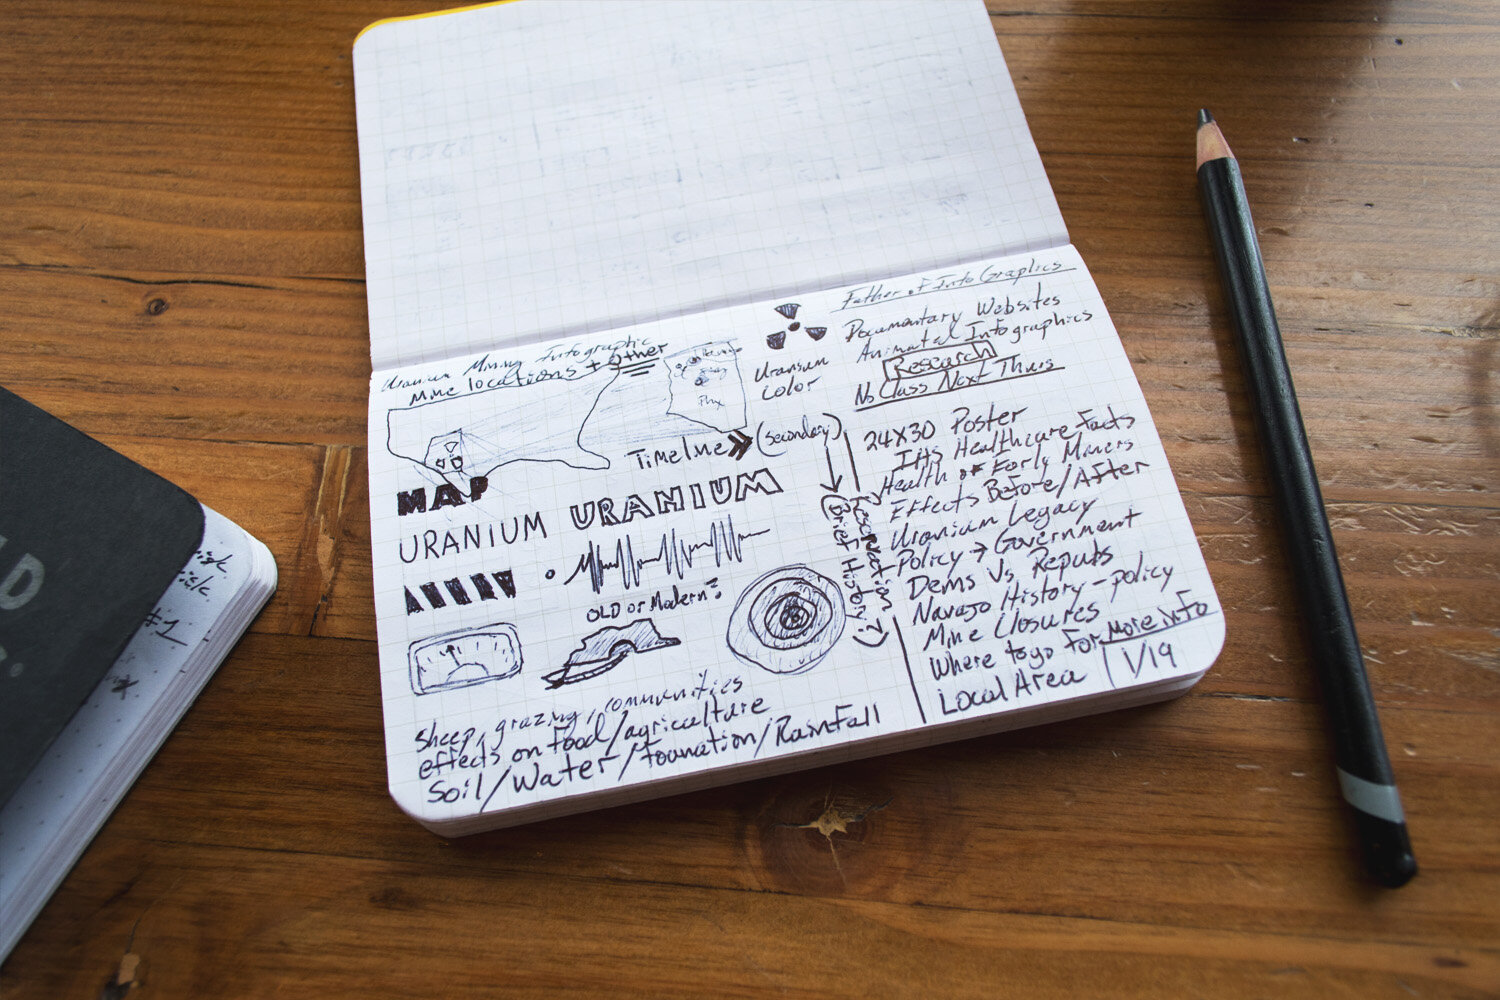 Uranium Mining Infographic
Mine locations + other
Uranium
Color
Timeline
(secondary)
MAP
URANIUM
URANIUM
OLD or Modern?
Reservation
(Brief History?)
sheep, grazing, communities
effects on food/agriculture
Soil/Water/Founation/Rainfall
Father of Info Graphics
Documentary Websites
Animatal Infographics
Research
No Class Next Thurs
24X30 Poster
IHS Healthcare Facts
Health of Early Miners
Effects Before/After
Uranium Legacy
Policy → Government
Dems Vs. Repubs
Navajo History - policy
Mine Closures
Where to go For More info
Local Area
1/19
D
#1